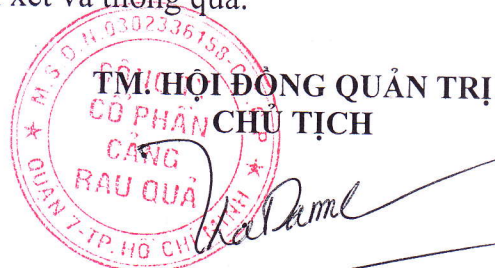 xét và thông qua.
TM. HỘI ĐỒNG QUẢN TRỊ
CHỦ TỊCH
M.S.D.N:0302336158-C.T.C.P
CÔNG TY
CỔ PHẦN
CẢNG
RAU QUẢ
QUẬN 7-TP.HỒ CHÍ MINH